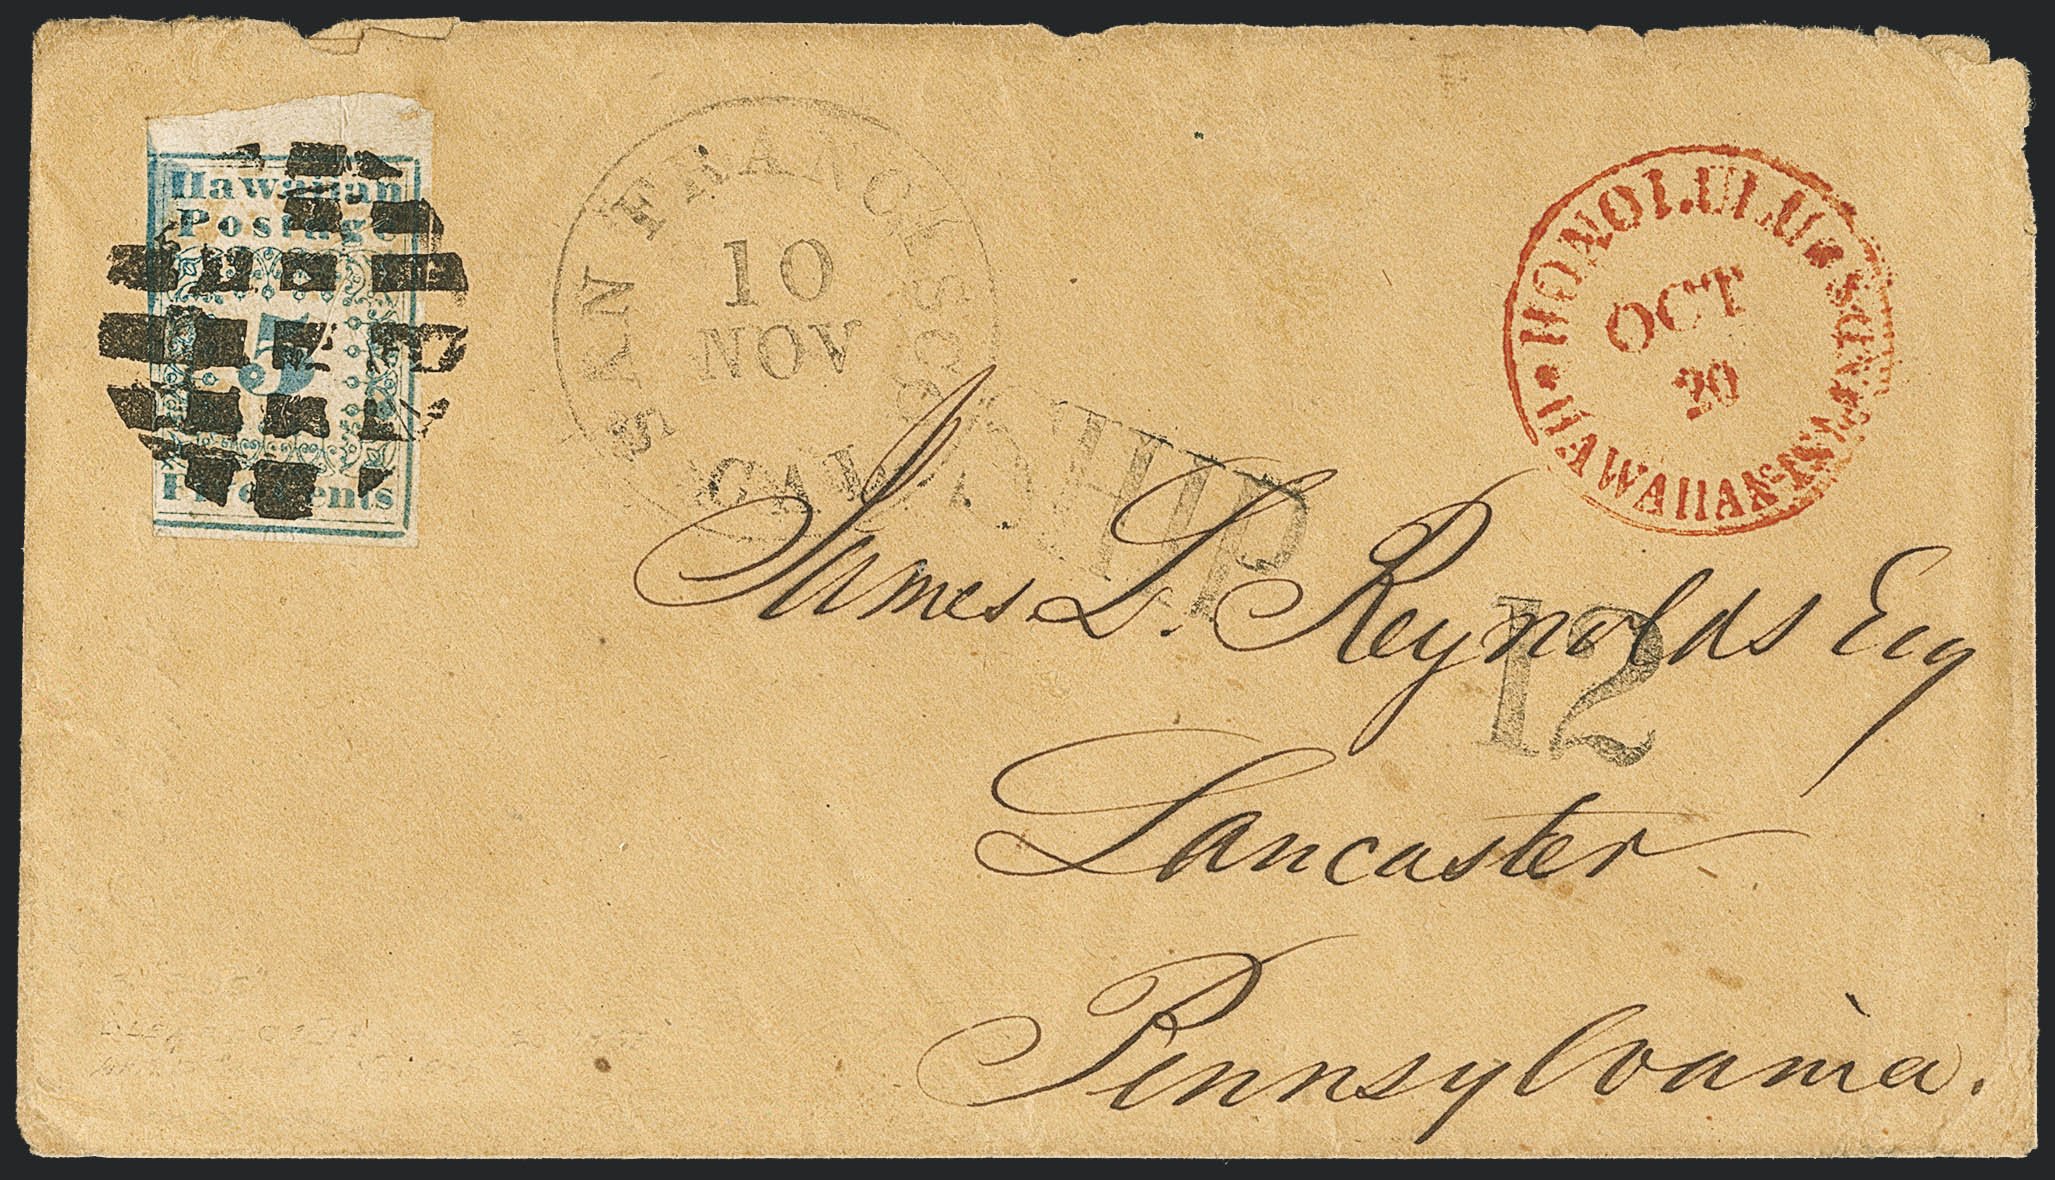 Hawaiian
Postage
5
Five Cents
SAN FRANCISCO
10
NOV
CAL.
SHIP
HONOLULU
OCT
20
HAWAIIAN
12
James L. Reynolds Esq
Lancaster
Pennsylvania.